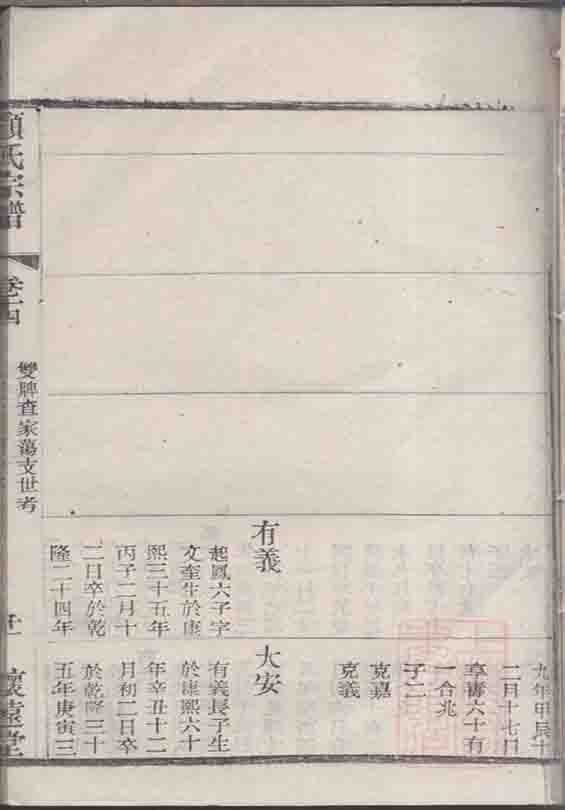 有義
起鳳六子字
文奎生於康
熙三十五年
丙子二月十
二日卒於乾
隆二十四年
九年甲辰十
二月十七日
享壽六十有
一合兆
子二
克嘉
克義
大安
有義長子生
於康熙六十
年辛丑十二
月初二日卒
於乾隆三十
五年庚寅三
氏宗譜
雙牌查家蕩支世考
懷遠堂